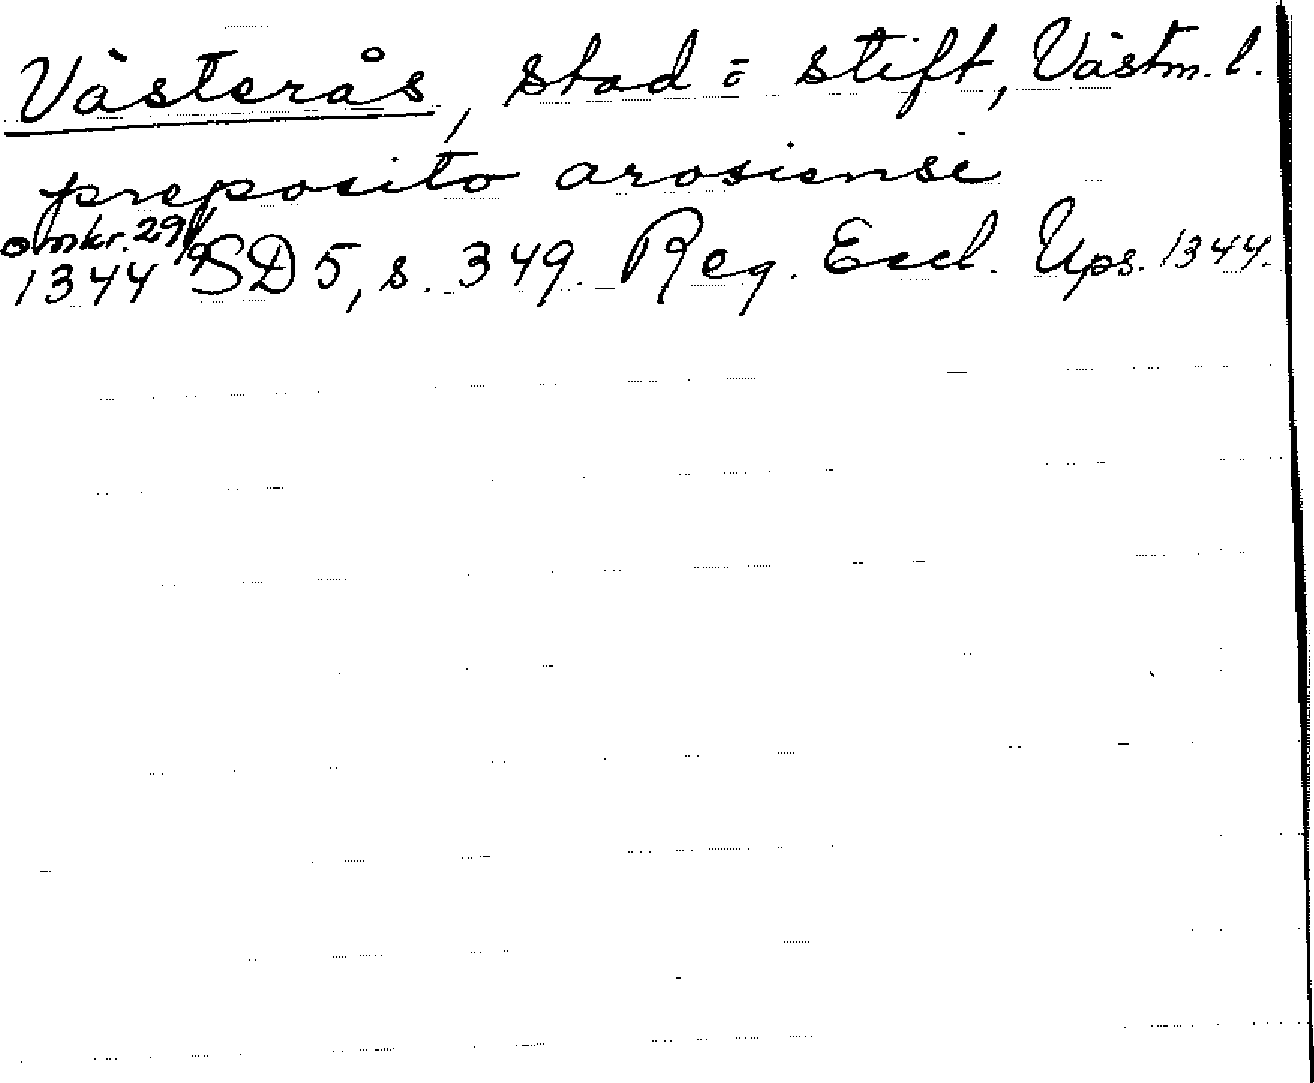 Västerås, stad o. stift, Västm. l.
preposito arosiense
omkr. 29/9
1344 SD 5, s. 349. Reg. Eccl. Ups. 1344.